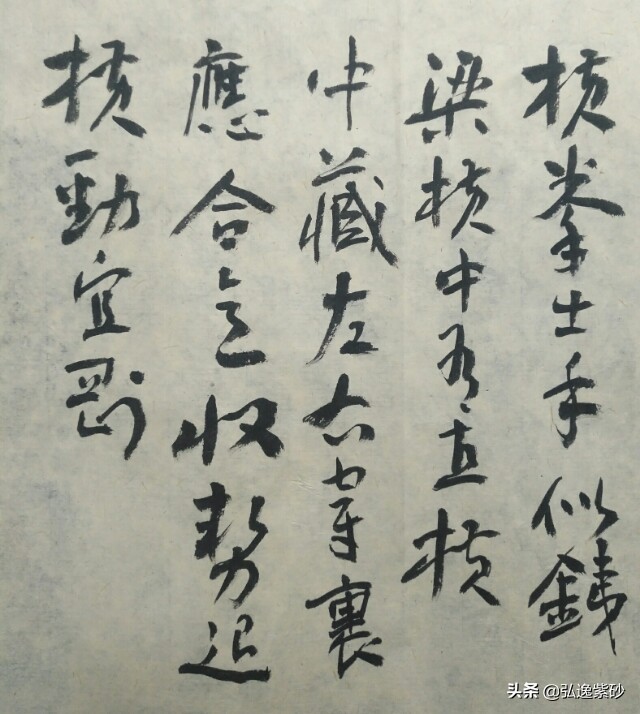 横拳出手似鐵
梁横中有直横
中藏左右穿裹
應合意收勢退
横勁宜剛
头条 @弘逸紫砂